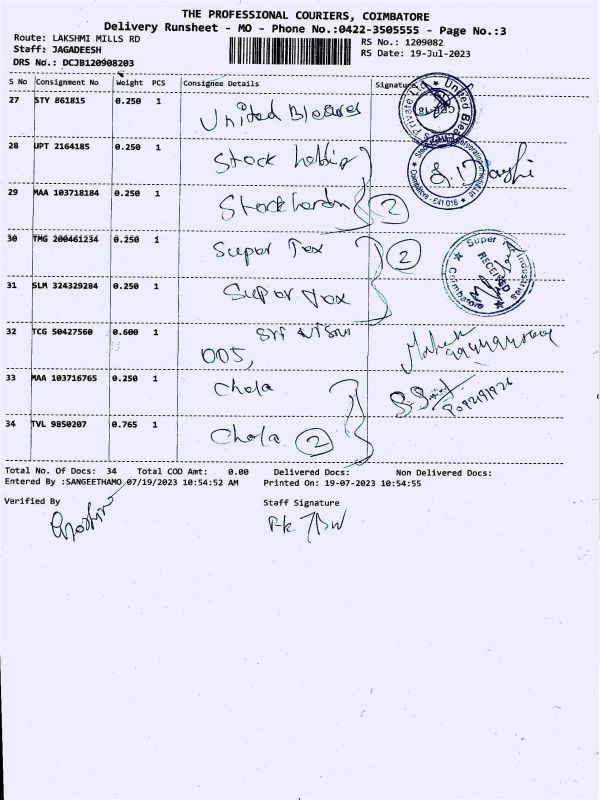 THE PROFESSIONAL COURIERS, COIMBATORE
Delivery Runsheet - MO - Phone No.:0422-3505555 - Page No.:3
Route: LAKSHMI MILLS RD
RS No.: 1209082
Staff: JAGADEESH
RS Date: 19-Jul-2023
DRS No.: DCJB120908203
S No Consignment No Weight PCS Consignee Details Signature
27 STY 861815 0.250 1 United Bleaures
28 UPT 2164185 0.250 1 Stock
29 MAA 103718184 0.250 1 2
30 TMG 200461234 0.250 1 Super Tex 2
31 SLM 324329284 0.250 1 Super Tex
32 TCG 50427560 0.600 1
005,
33 MAA 103716765 0.250 1 Chola
34 TVL 9850207 0.765 1 Chola 2
Private Ltd ★ United
Coimbatore - 641 018 ★
Super Tex Industries
RECEIVED
★ Coimbatore ★
Total No. Of Docs: 34 Total COD Amt: 0.00 Delivered Docs: Non Delivered Docs:
Entered By :SANGEETHAMO 07/19/2023 10:54:52 AM Printed On: 19-07-2023 10:54:55
Verified By Staff Signature